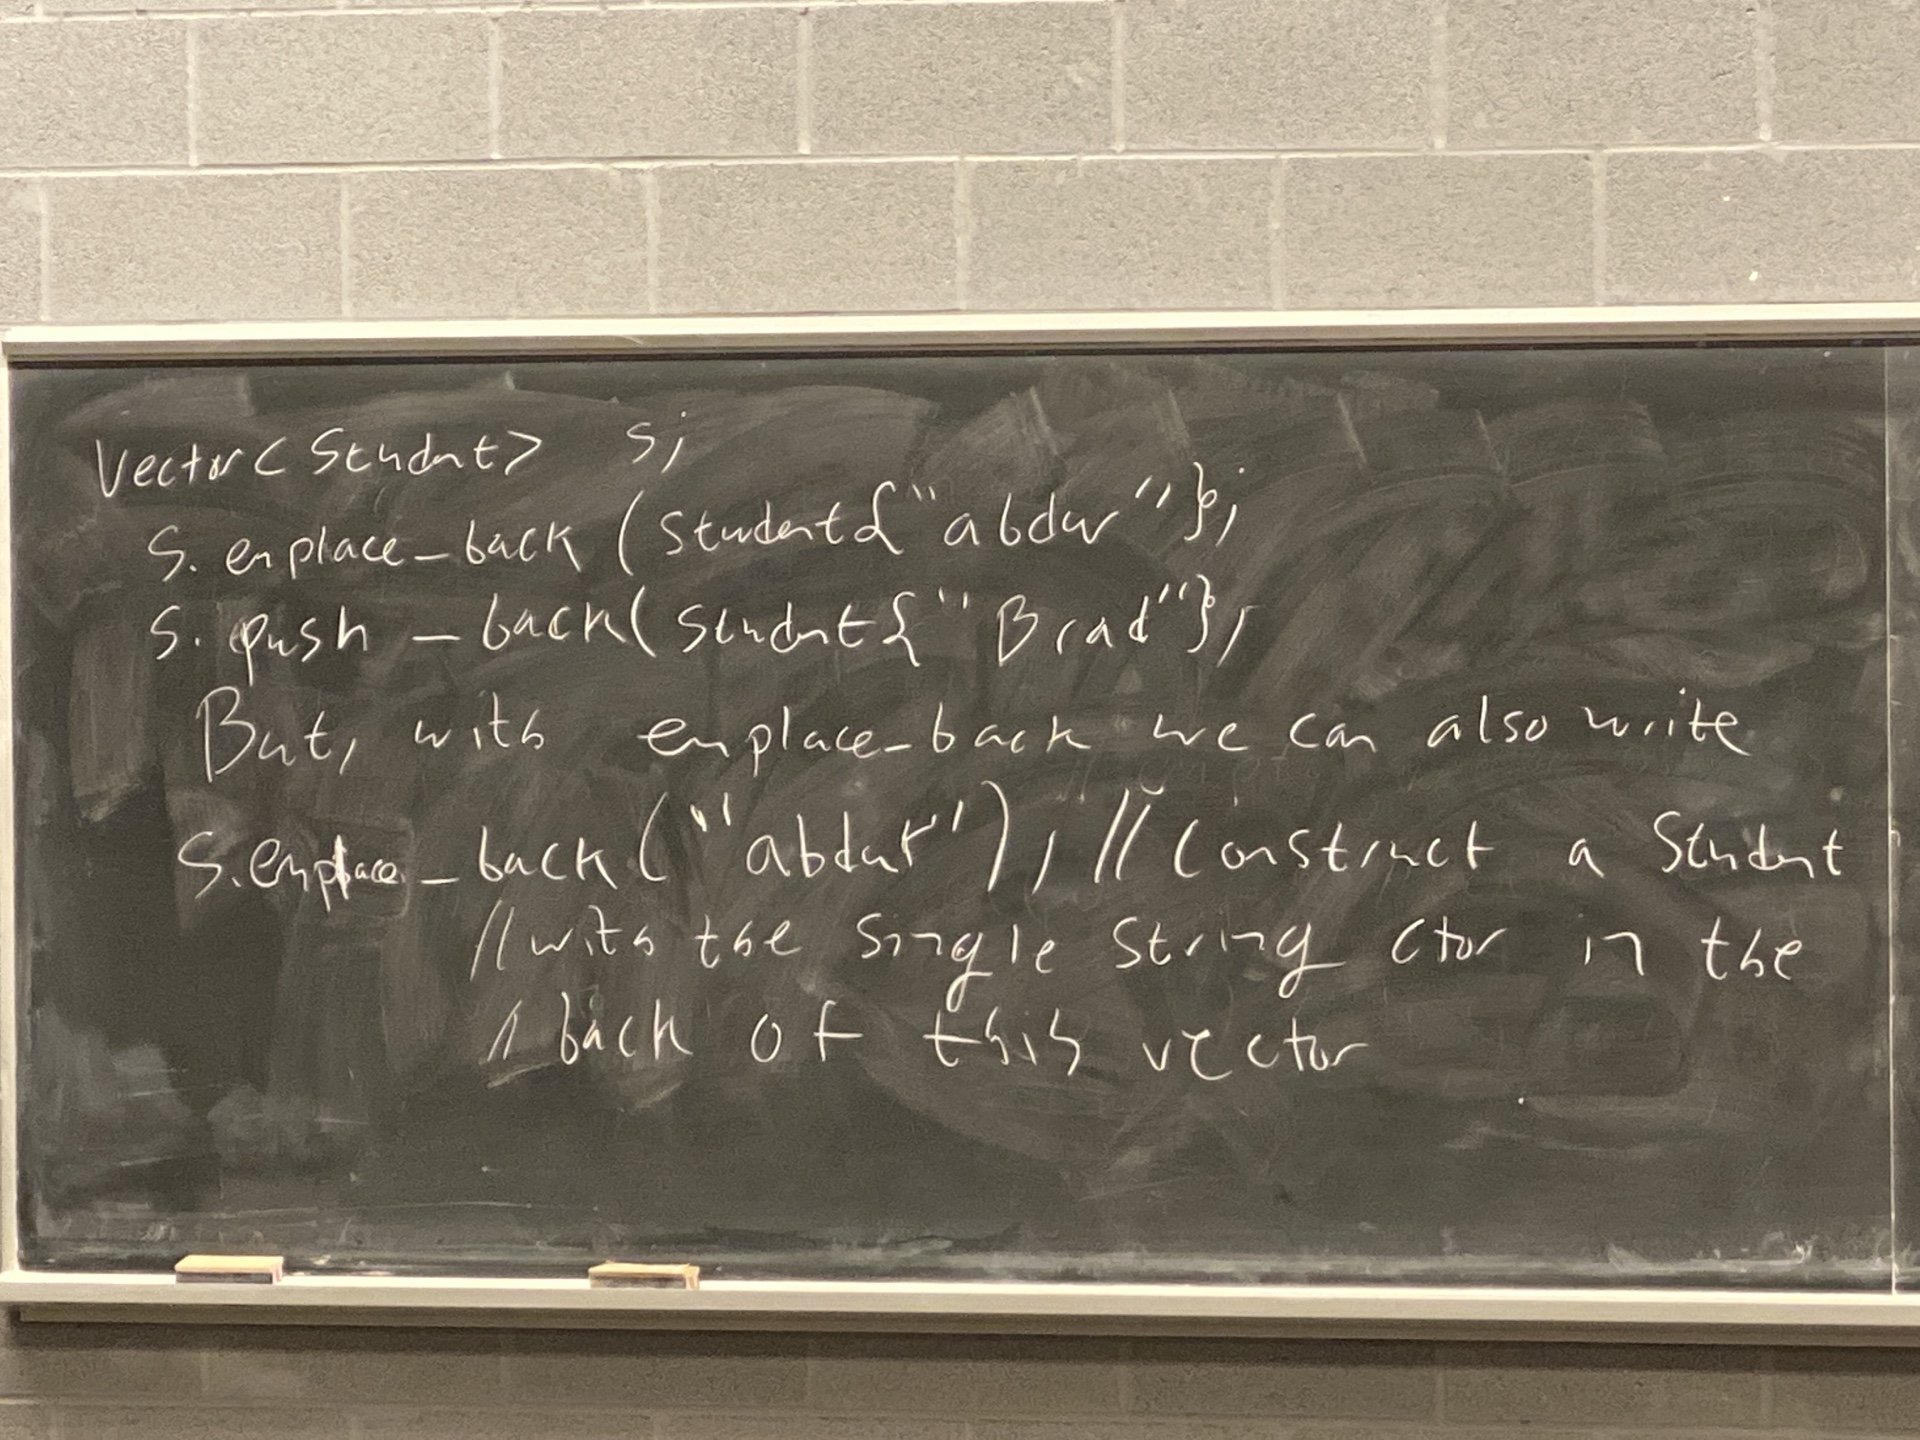 Vector<Student> s;
s.emplace_back(Student{"abdur"};
s.push_back(Student{"Brad"};
But, with emplace_back we can also write
s.emplace_back("abdur"); // Construct a Student
// with the single string ctor in the
// back of this vector